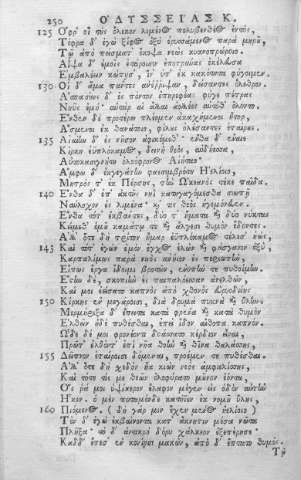 250 ΟΔΥΣΣΕΙΑΣ Κ.
125 Ὄφρ' οἱ τοὺς ὄλεκον λιμένος πολυβενθέος ἐντὸς,
Τόφρα δ' ἐγὼ ξίφος ὀξὺ ἐρυσσάμενος παρὰ μηροῦ,
Τῷ ἀπὸ πείσματ' ἔκοψα νεὼς κυανοπρώροιο.
Αἶψα δ' ἐμοῖς ἑτάροισιν ἐποτρύνας ἐκέλευσα
Ἐμβαλέειν κώπῃς, ἵν' ὑπ' ἐκ κακότητα φύγοιμεν.
130 Οἱ δ' ἅμα πάντες ἀνέρριψαν, δείσαντες ὄλεθρον.
Ἀσπασίως δ' ἐς πόντον ἐπηρεφέας φύγε πέτρας
Νηῦς ἐμή· αὐτὰρ αἱ ἄλλαι ἀολλέες αὐτόθ' ὄλοντο.
Ἔνθεν δὲ προτέρω πλέομεν ἀκαχήμενοι ἦτορ,
Ἄσμενοι ἐκ θανάτοιο, φίλους ὀλέσαντες ἑταίρους.
135 Αἰαίην δ' ἐς νῆσον ἀφικόμεθ'· ἔνθα δ' ἔναιε
Κίρκη ἐϋπλόκαμος, δεινὴ θεὸς, αὐδήεσσα,
Αὐτοκασιγνήτη ὀλοόφρονος Αἰήταο·
Ἄμφω δ' ἐκγεγάτην φαεσιμβρότου Ἠελίοιο,
Μητρός τ' ἐκ Πέρσης, τὴν Ὠκεανὸς τέκε παῖδα.
140 Ἔνθα δ' ἐπ' ἀκτῆς νηῒ κατηγαγόμεσθα σιωπῇ
Ναύλοχον ἐς λιμένα· καί τις θεὸς ἡγεμόνευεν.
Ἔνθα τότ' ἐκβάντες, δύο τ' ἤματα καὶ δύο νύκτας
Κείμεθ' ὁμοῦ καμάτῳ τε καὶ ἄλγεσι θυμὸν ἔδοντες.
Ἀλλ' ὅτε δὴ τρίτον ἦμαρ ἐϋπλόκαμος τέλεσ' ἠὼς,
145 Καὶ τότ' ἐγὼν ἐμὸν ἔγχος ἑλὼν καὶ φάσγανον ὀξὺ,
Καρπαλίμως παρὰ νηὸς ἀνήϊον ἐς περιωπὴν,
Εἴπως ἔργα ἴδοιμι βροτῶν, ἐνοπήν τε πυθοίμην.
Ἔστην δὲ, σκοπιὴν ἐς παιπαλόεσσαν ἀνελθὼν,
Καί μοι ἐείσατο καπνὸς ἀπὸ χθονὸς εὐρυοδείης
150 Κίρκης ἐν μεγάροισι, διὰ δρυμὰ πυκνὰ καὶ ὕλην.
Μερμήριξα δ' ἔπειτα κατὰ φρένα καὶ κατὰ θυμὸν
Ἐλθεῖν ἠδὲ πυθέσθαι, ἐπεὶ ἴδον αἴθοπα καπνόν.
Ὧδε δέ μοι φρονέοντι δοάσσατο κέρδιον εἶναι,
Πρῶτ' ἐλθόντ' ἐπὶ νῆα θοὴν καὶ θῖνα θαλάσσης,
155 Δεῖπνον ἑταίροισι δόμεναι, προέμεν τε πυθέσθαι.
Ἀλλ' ὅτε δὴ σχεδὸν ἦα κιὼν νεὸς ἀμφιελίσσης,
Καὶ τότε τίς με θεῶν ὀλοφύρατο μοῦνον ἐόντα,
Ὅς ῥά μοι ὑψίκερων ἔλαφον μέγαν εἰς ὁδὸν αὐτὴν
Ἧκεν. ὁ μὲν ποταμόνδε κατήϊεν ἐκ νομοῦ ὕλης,
160 Πιόμενος· (δὴ γάρ μιν ἔχεν μένος ἠελίοιο)
Τὸν δ' ἐγὼ ἐκβαίνοντα κατ' ἄκνηστιν μέσα νῶτα
Πλῆξα· τὸ δ' ἀντικρὺ δόρυ χάλκεον ἐξεπέρησε·
Κὰδ δ' ἔπεσ' ἐν κονίῃσι μακὼν, ἀπὸ δ' ἔπτατο θυμός.
Τῷ